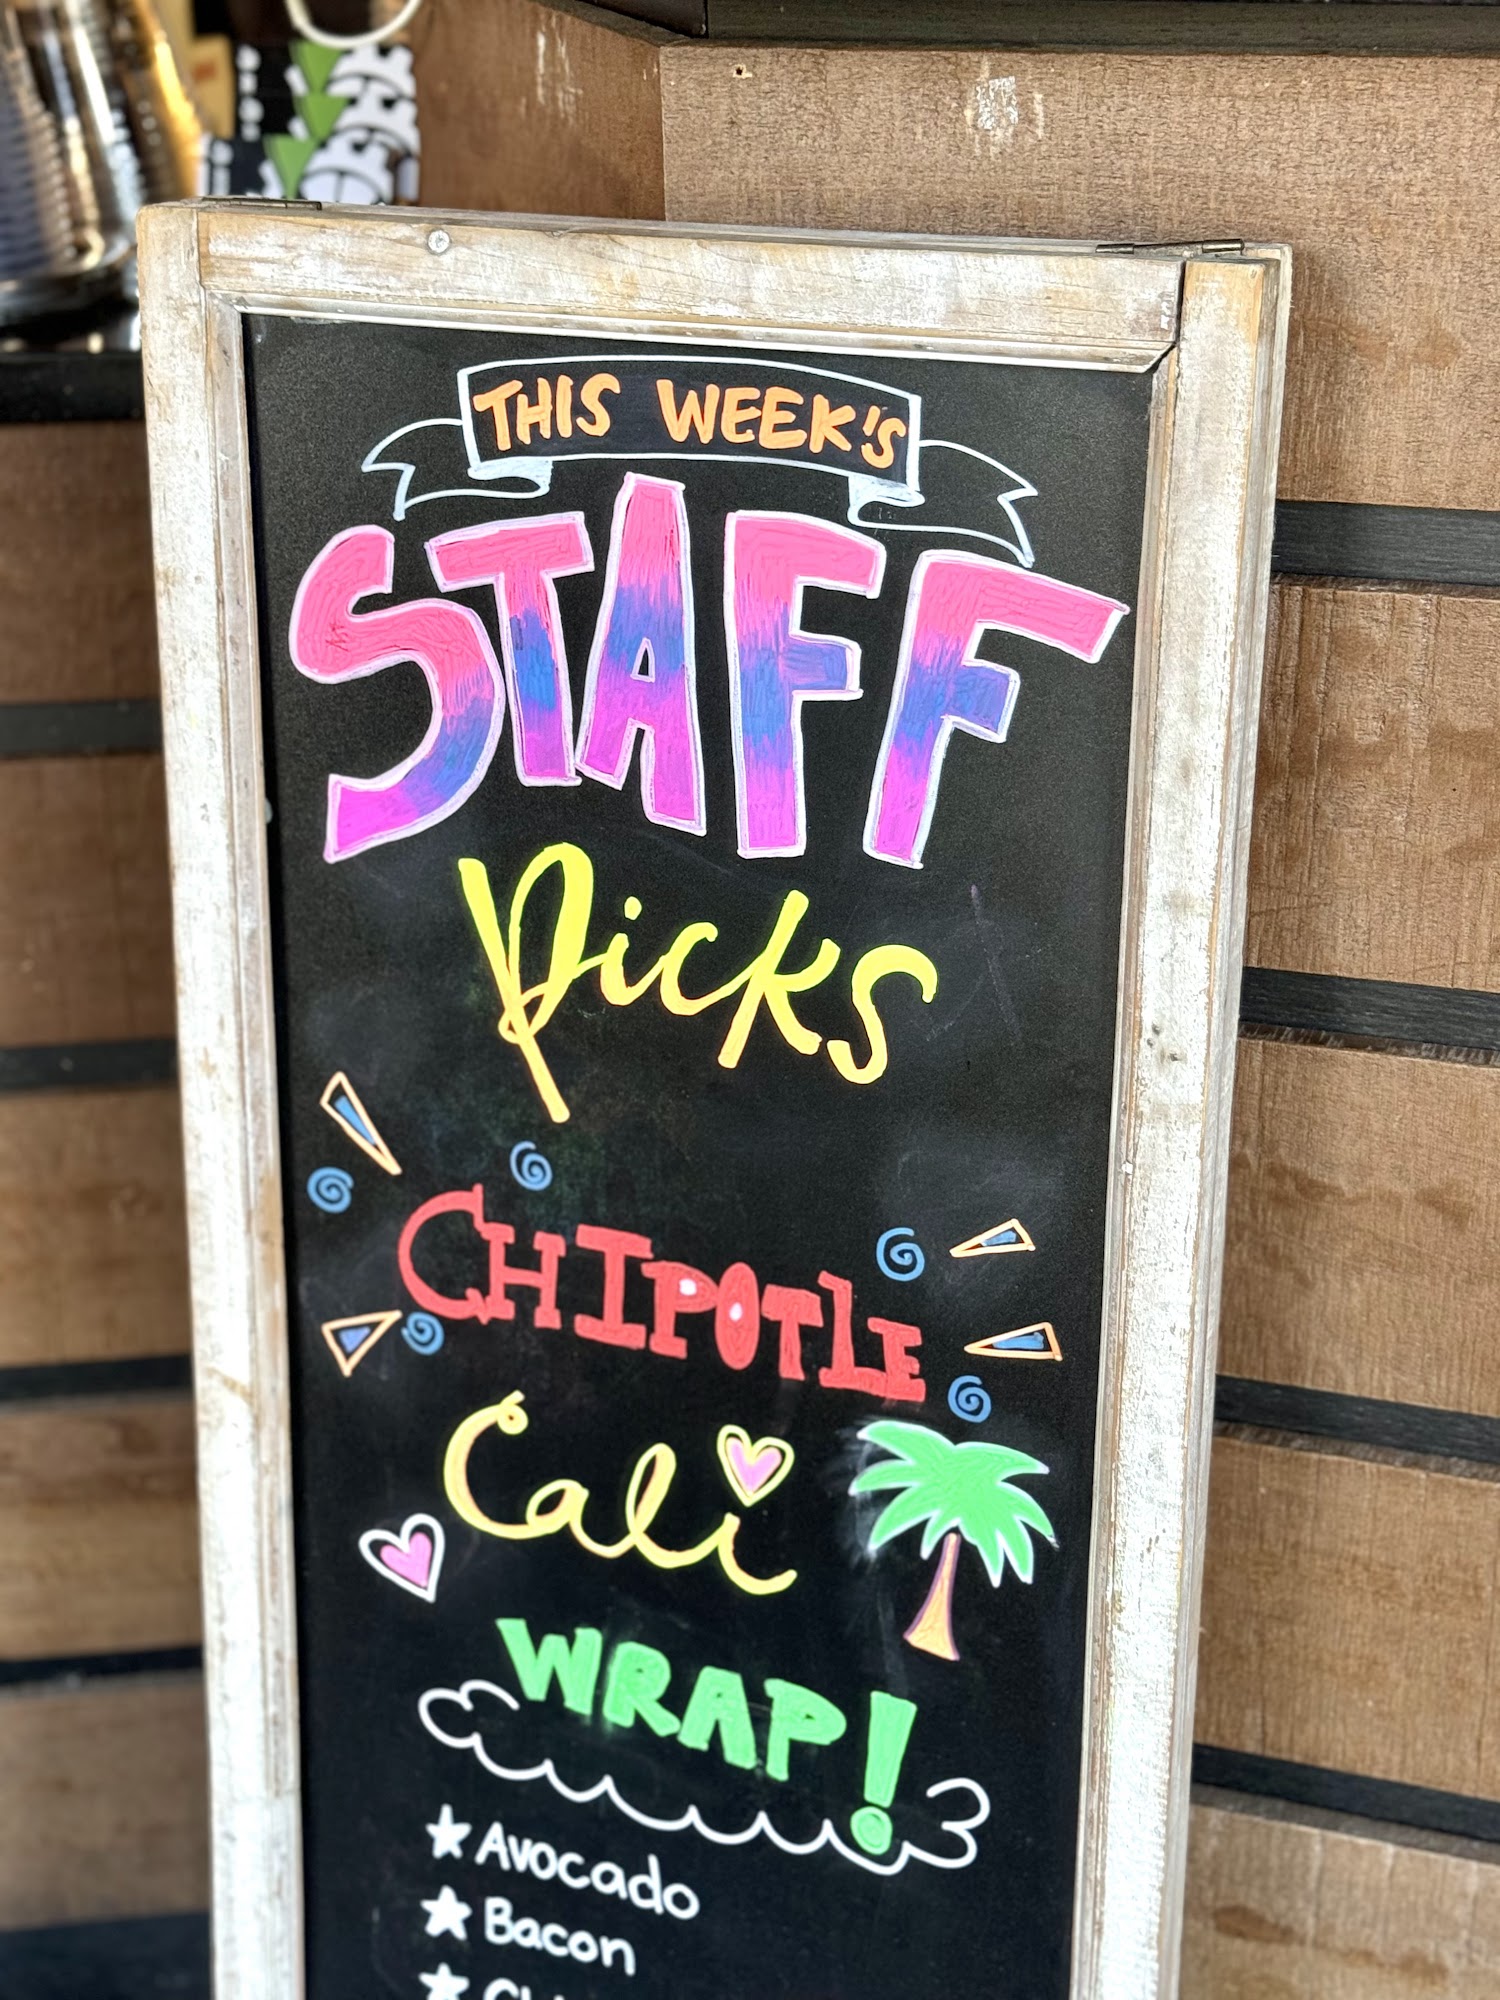 THIS WEEK'S
STAFF
Picks
CHIPOTLE
Cali
WRAP!
Avocado
Bacon